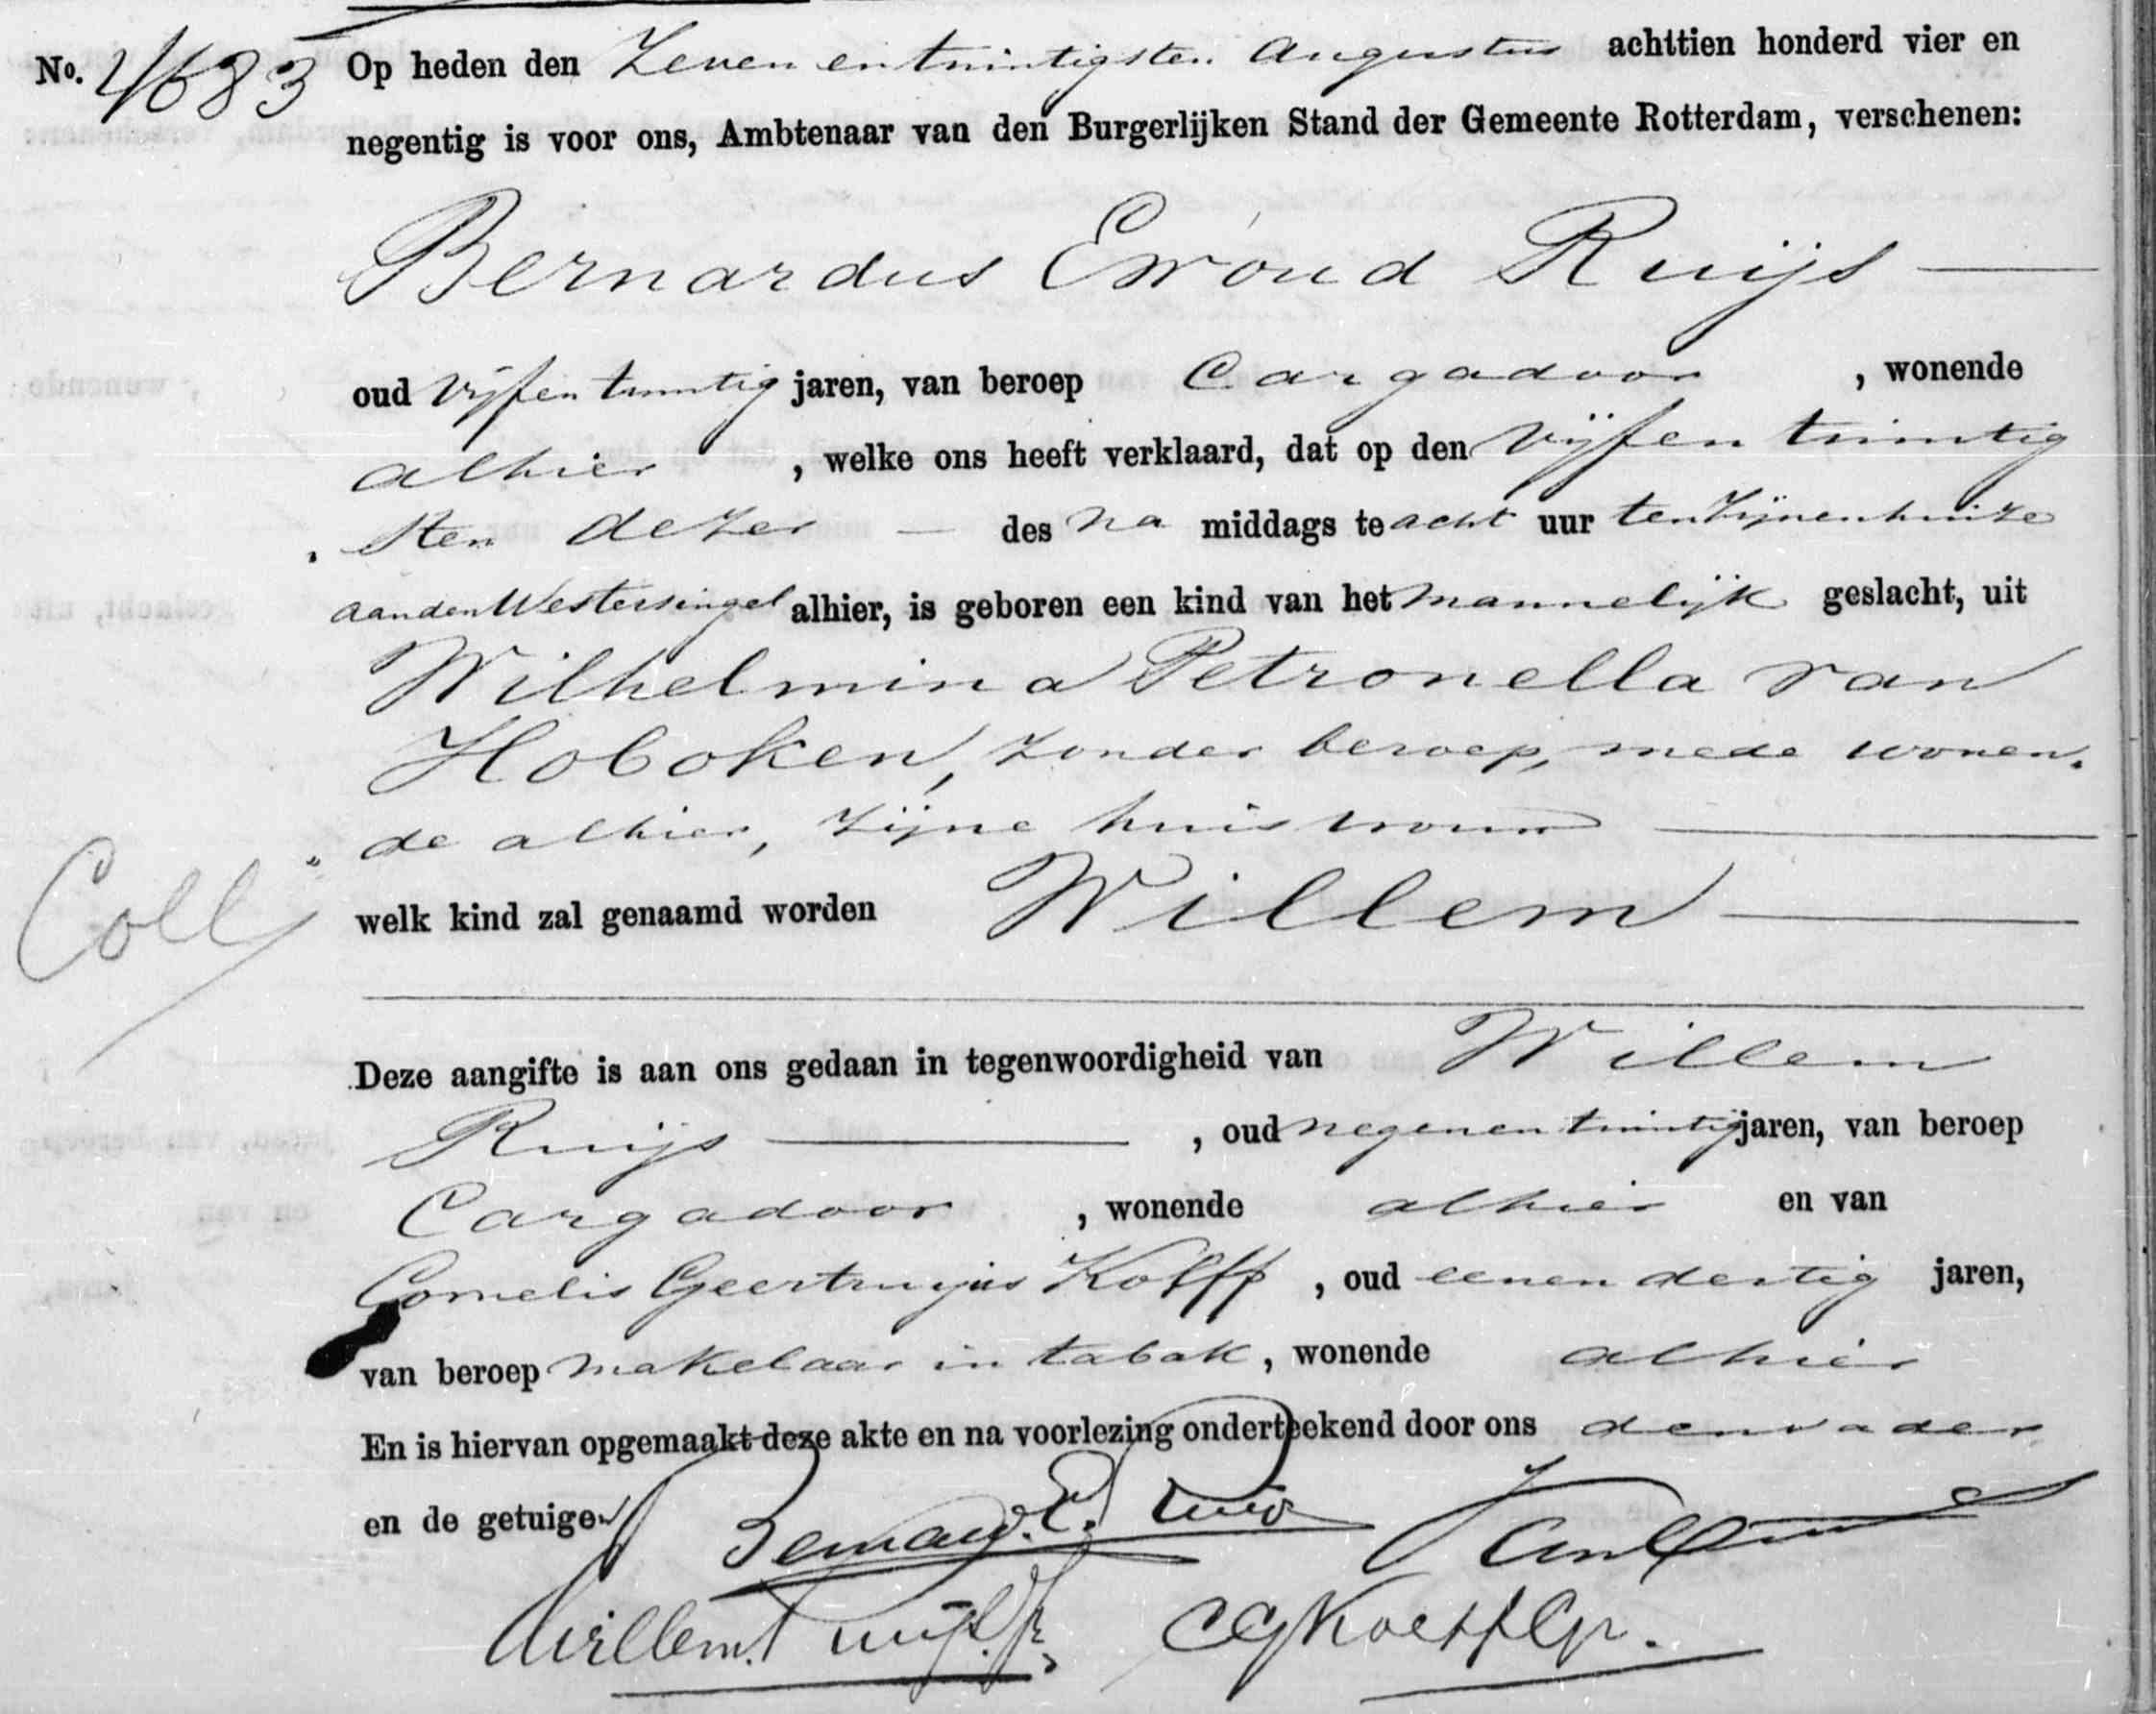 No. 4683 Op heden den Zeven en twintigsten Augustus achttien honderd vier en
negentig is voor ons, Ambtenaar van den Burgerlijken Stand der Gemeente Rotterdam, verschenen:
Bernardus Ewoud Ruijs
oud vijfentwintig jaren, van beroep Cargadoor, wonende
alhier, welke ons heeft verklaard, dat op den vijfentwintig
sten dezer des na middags te acht uur ten zijnen huize
aan den Westersingel alhier, is geboren een kind van het mannelijk geslacht, uit
Wilhelmina Petronella van
Hoboken, zonder beroep, mede wonen-
de alhier, zijne huisvrouw
Coll welk kind zal genaamd worden Willem
Deze aangifte is aan ons gedaan in tegenwoordigheid van Willem
Ruijs, oud negenentwintig jaren, van beroep
Cargadoor, wonende alhier en van
Cornelis Geertruijus Kolff, oud eenendertig jaren,
van beroep makelaar in tabak, wonende alhier
En is hiervan opgemaakt deze akte en na voorlezing onderteekend door ons den vader
en de getuigen Bernard. E. Ruijs
Willem Ruijs. Jr. CGKolff Gr.